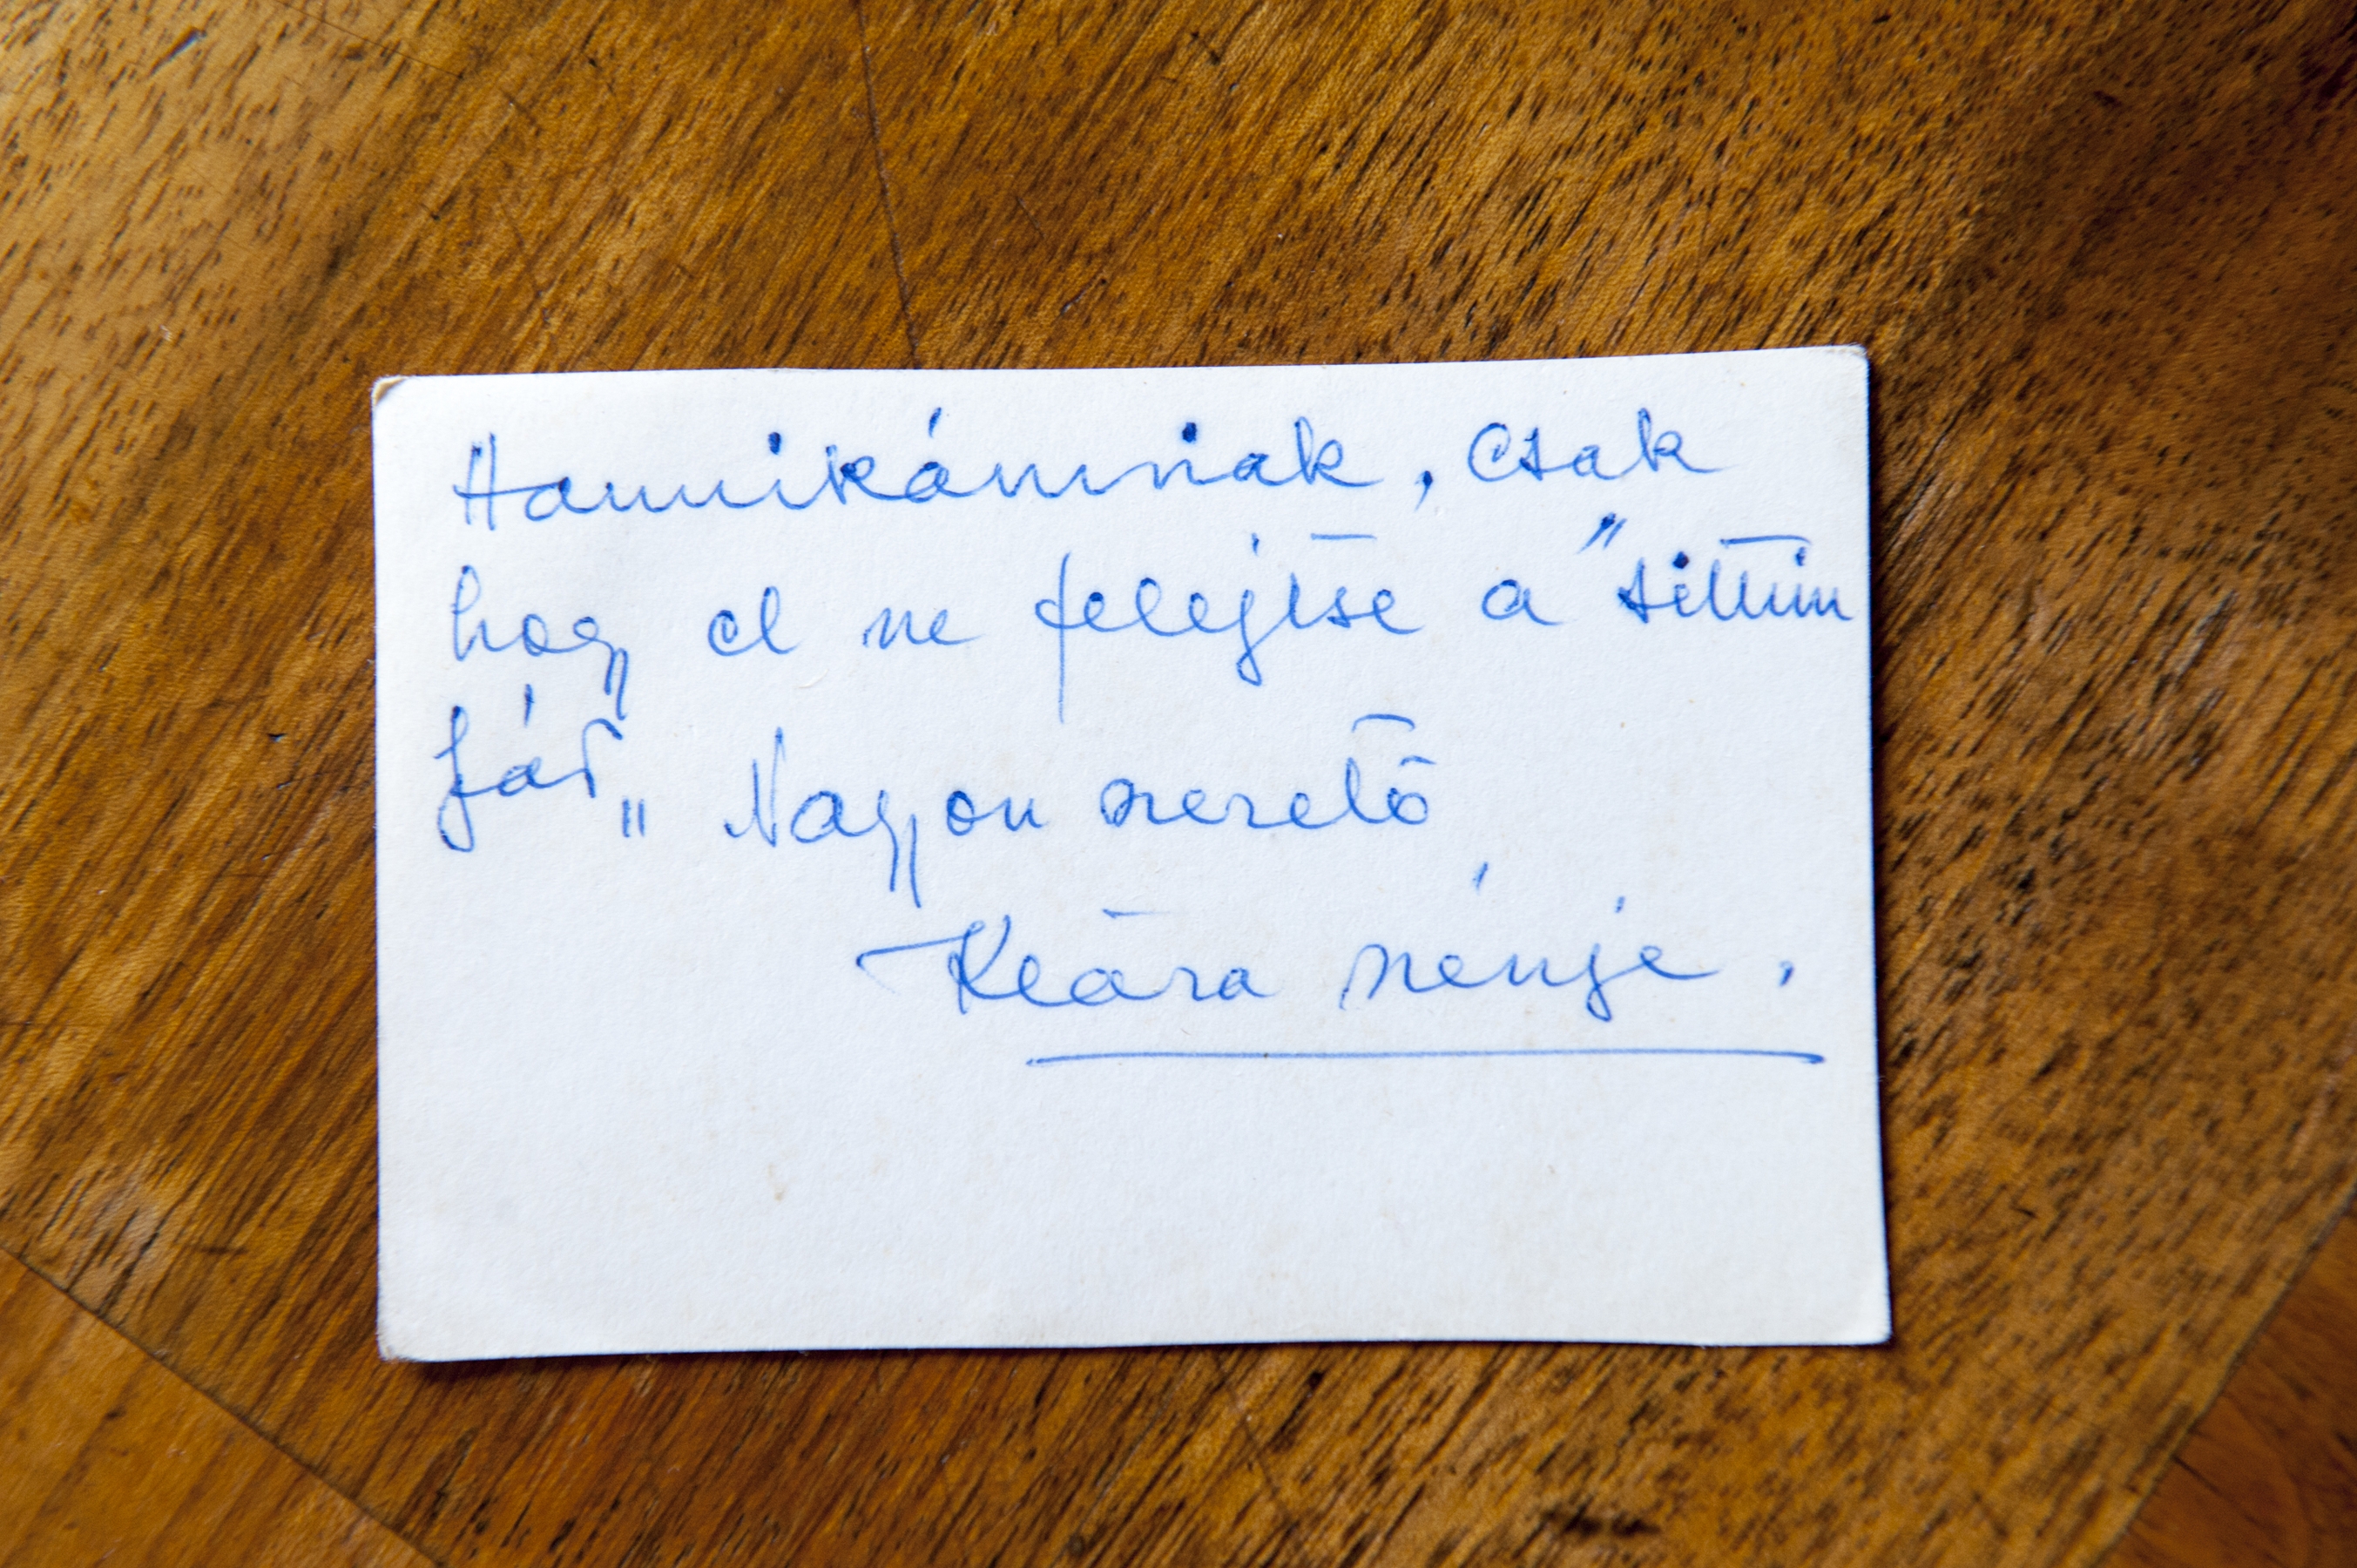 Hannikámnak, csak
hogy el ne felejtse a "sittim
fát„ Nagyon szerető
Klára nénje.